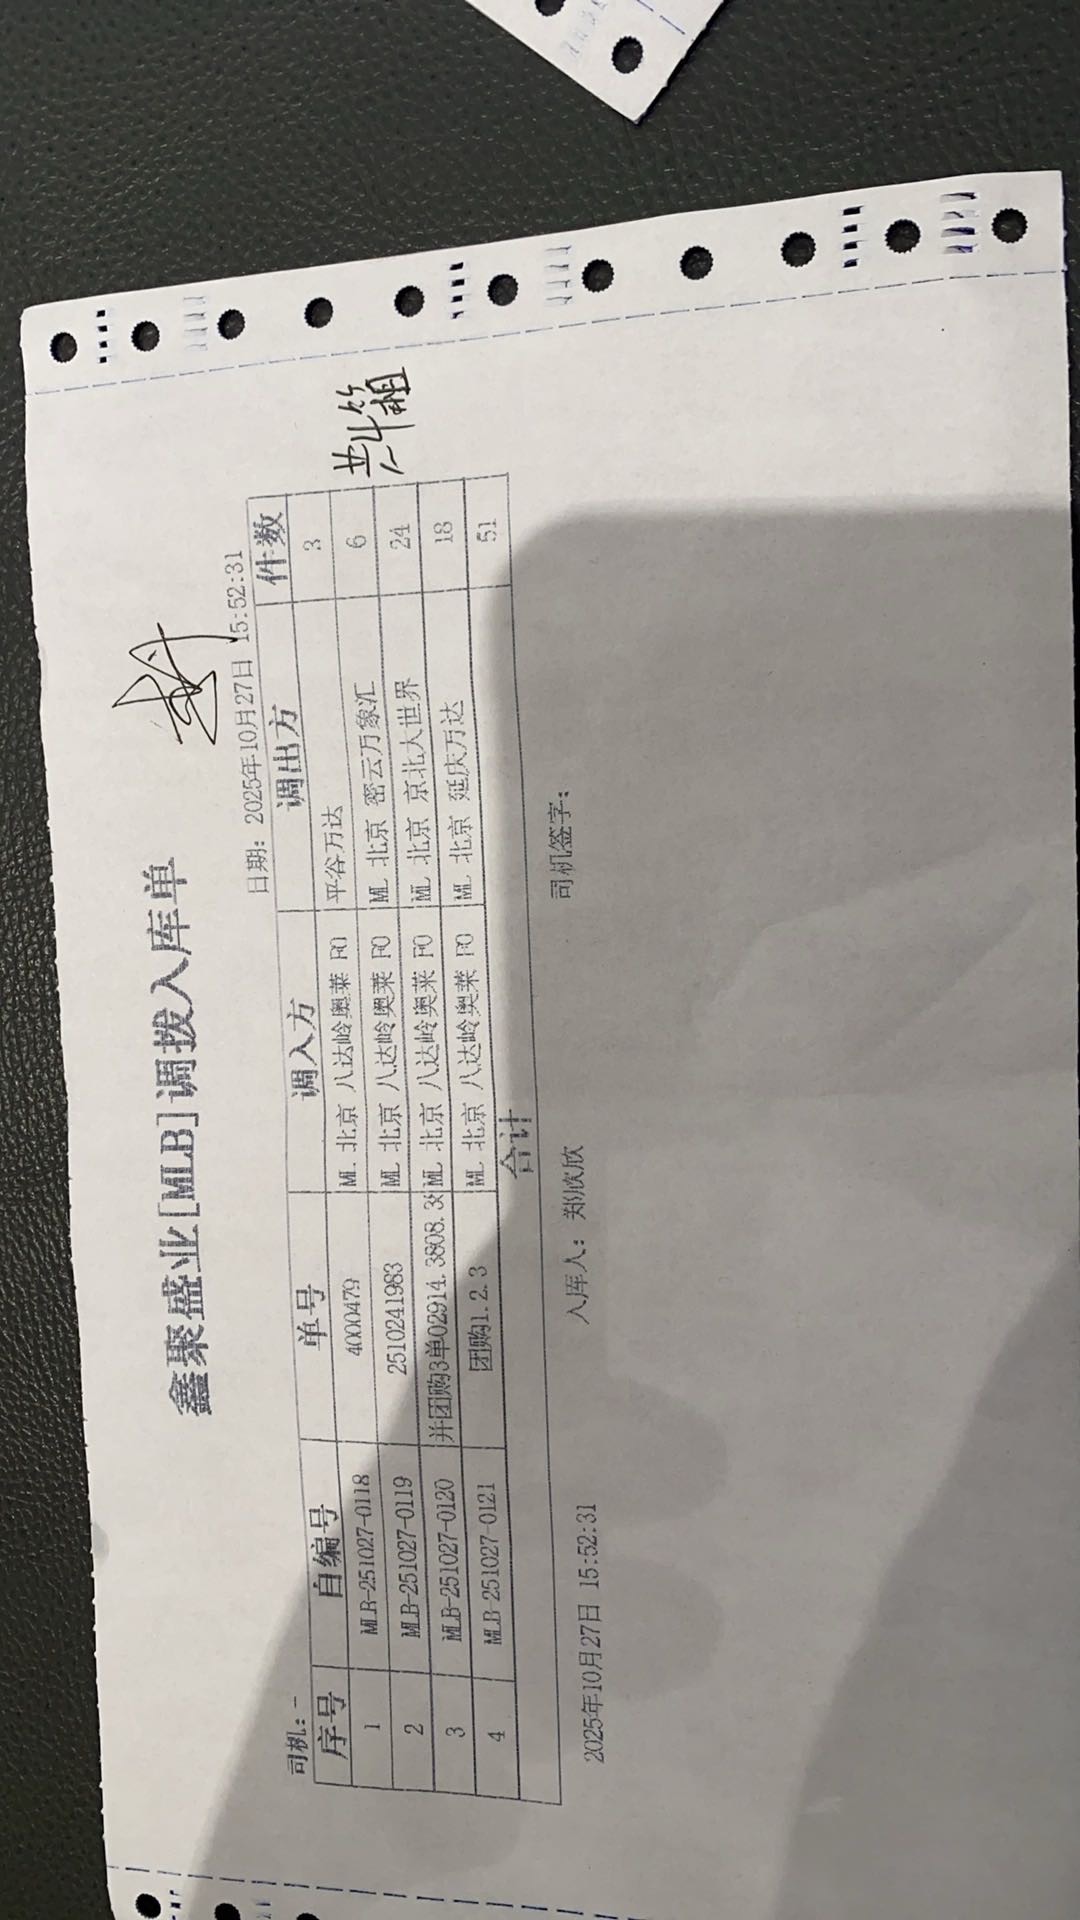 鑫聚盛业[MLB]调拨入库单
司机：-
日期：2025年10月27日 15:52:31
序号 自编号 单号 调入方 调出方 件数
1 MLB-251027-0118 4000479 ML 北京 八达岭奥莱 FO 平谷万达 3
2 MLB-251027-0119 2510241983 ML 北京 八达岭奥莱 FO ML 北京 密云万象汇 6
3 MLB-251027-0120 并团购3单02914.3808.3 ML 北京 八达岭奥莱 FO ML 北京 京北大世界 24
4 MLB-251027-0121 团购1.2.3 ML 北京 八达岭奥莱 FO ML 北京 延庆万达 18
合计 51
共4箱
2025年10月27日 15:52:31 入库人：郑欣欣 司机签字：